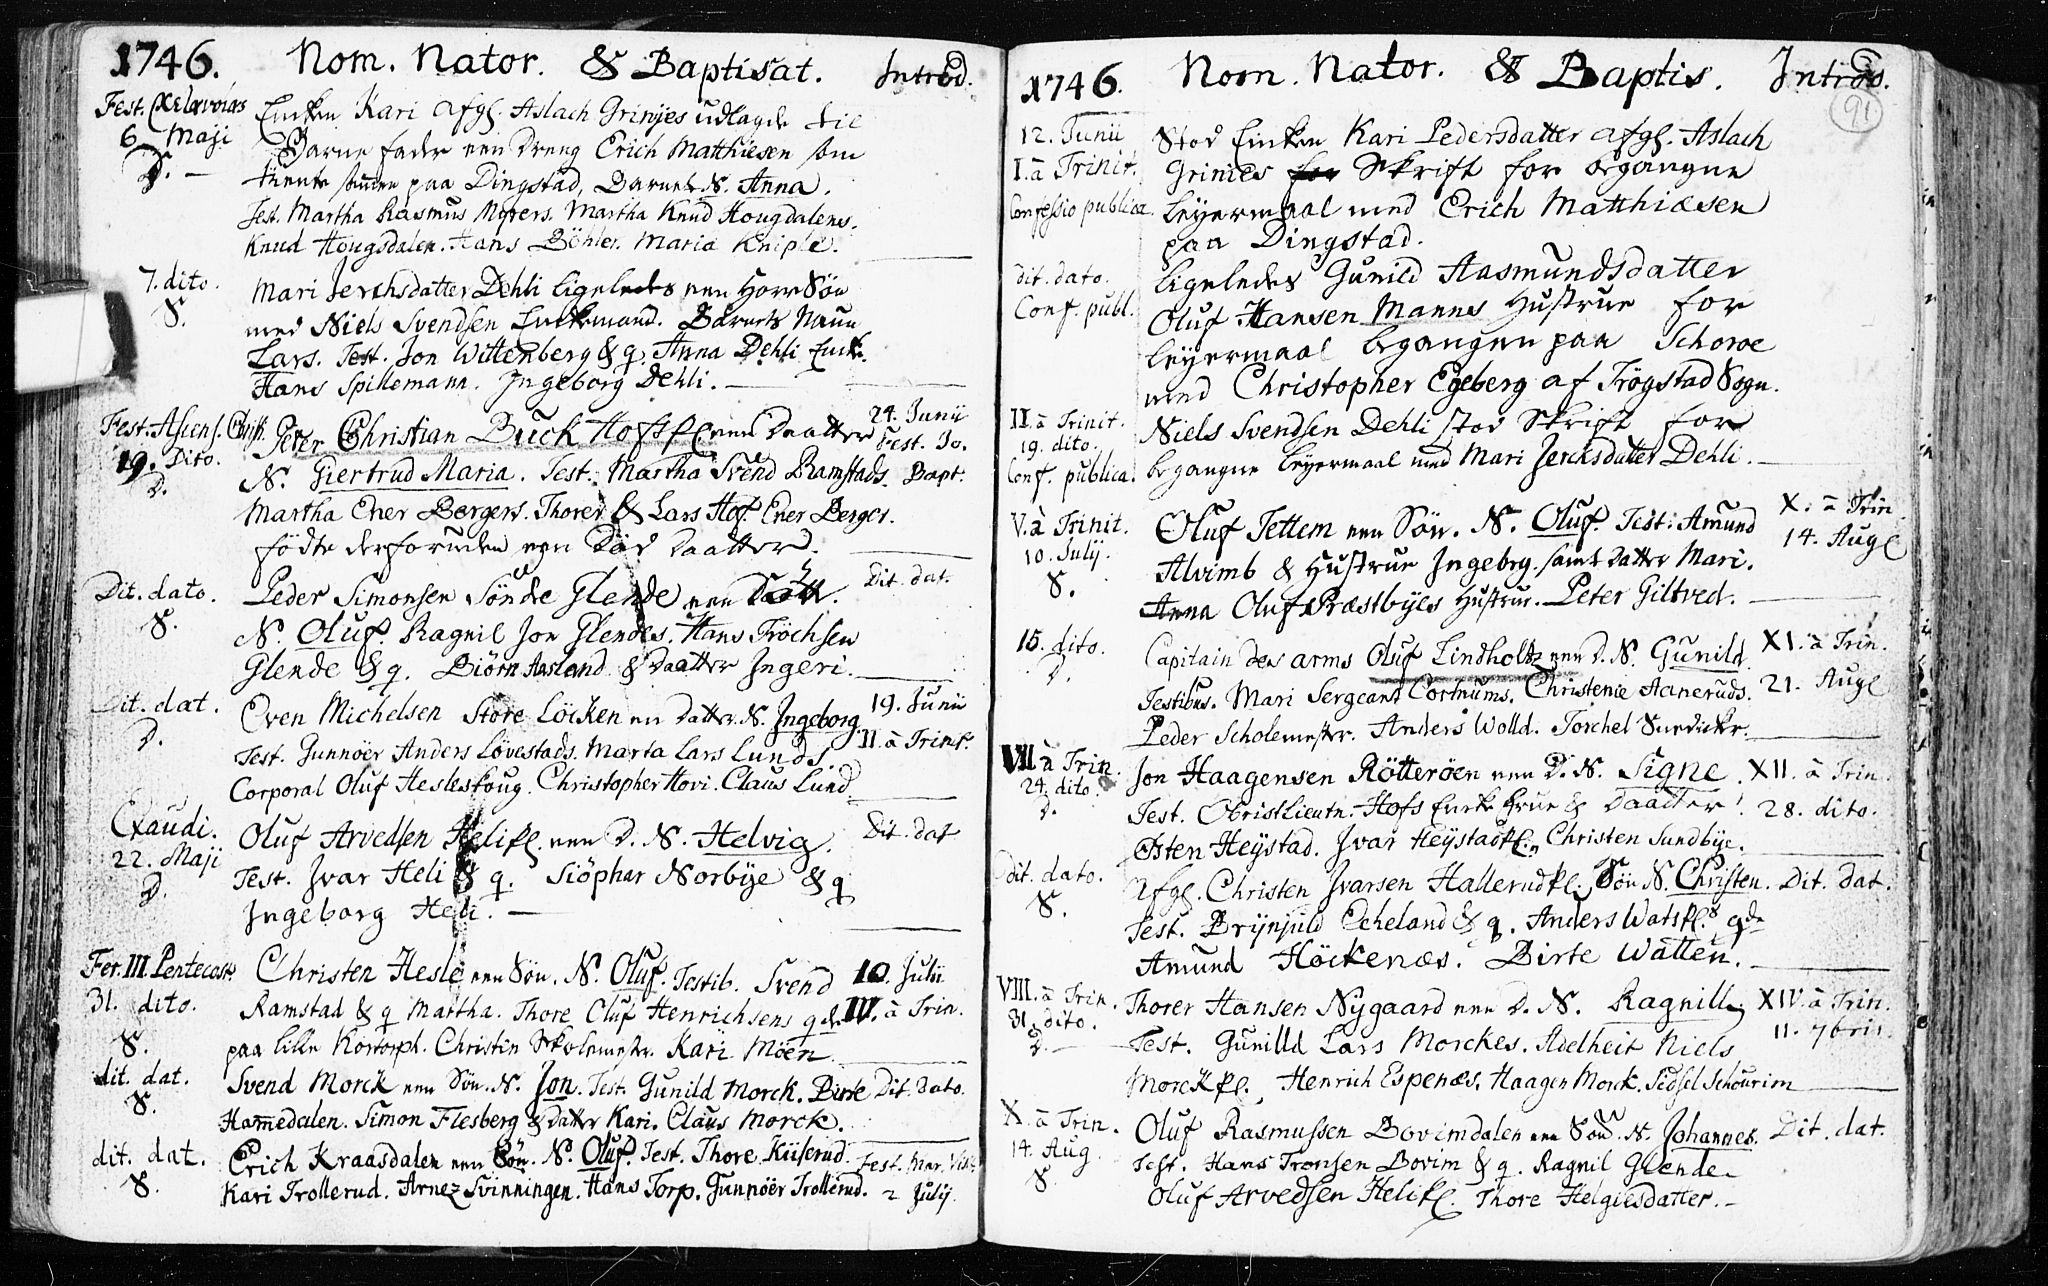 1746. Nom. Nator. & Baptisat. Introd.
Fest.
6 Maji
D. —
Encken Kari afgl. Aslach Grinjes udlagde til
Barne fader een Dreng Erich Matthiesen som
tiente paa Dingstad, Barnets N. Anna.
Test. Martha Rasmus Moyers. Martha Knud Hougdalens.
Knud Hougsdalen. Hans Böhler. Maria Kniple.
7. dito.
S.
Mari Jerchsdatter Dehli ligeledes een Hore Sön
med Niels Svendsen Enckemand. Barnets Naun
Lars. Test. Jon Wittenberg & q. Anna Dehli Encke.
Hans Spillemann. Ingeborg Dehli. —
Fest. Ascens. Christi.
19. Dito.
D.
Peter Christian Buck Hofspl. een Daatter
N. Giertrud Maria. Test. Martha Svend Ramstads.
Martha Ener Bergers. Thorer & Lars Hof. Ener Berger.
födte derforuden een Död Daatter.
24. Junii
Fest. Jo.
Bapt.
Dit. dato.
S.
Peder Simonsen Söndre Glende een Sön.
N. Oluf. Ragnil Jon Glendes. Hans Tröchsen
Glende & q. Biörn Aasland & Daatter Ingeri.
Dit. dat.
Dit. dat.
D.
Even Michelsen Store Löcken en Datter N. Ingeborg.
Test. Gunnöer Anders Lövestads. Marta Lars Lunds.
Corporal Oluf Hesleskoug. Christopher Hovi. Claus Lund
19. Junii
II. à Trinit.
Exaudi.
22. Maji
D.
Oluf Arvedsen Helipl. een D. N. Helvig.
Test. Ivar Heli & q. Siöphar Norbÿe & q
Ingeborg Heli. —
Dit. dat
Fer. III. Pentecost.
31. dito.
S.
Christen Hesle een Sön. N. Oluf. Testib. Svend
Ramstad & q Martha. Thore Oluf Henrichsens qde
paa lille Kortorph. Christen Skolemester. Kari Möen
10. Julii
IV. à Trin.
dit. dat.
S.
Svend Morck een Sön. N. Jon. Test. Gunild Morck. Birte
Hamedalen. Simon Flesberg & Datter Kari. Claus Morck.
Dit. Dato.
dit. dat.
S.
Erich Kraasdalen een Sön. N. Oluf. Test. Thore Kiiserud
Kari Trollerud. Arnez Svinningen. Hans Torp. Gunnöer Trollerud.
Fest. Mar. Vis.
2 Julij.
1746. Nom. Nator. & Baptis. Introd.
91
12. Junii
I. à Trinit.
Confessio publica.
Stod Encken Kari Pedersdatter afgl. Aslach
Grinies for Skrift for begangne
Leyermaal med Erich Matthiæsen
paa Dingstad.
dit. dato.
Conf. publ.
Ligeledes Gunild Aasmundsdatter
Oluf Hansen Manns Hustrue for
leyermaal begangen paa Schove
med Christopher Egeberg af Trögstad Sogn.
II. à Trinit.
19. dito.
Conf. publica.
Niels Svendsen Dehli stod Skrift for
begangne leyermaal med Mari Jercksdatter Dehli.
V. à Trinit.
10. Julij.
S.
Oluf Tettem een Sön. N. Oluf. Test. Amund
Alvimb & Hustrue Ingebrg. samt Datter Mari.
Anna Oluf Præstbÿes Hustrue. Peter Giltved.
X. à Trin.
14. Aug
15. dito.
D.
Capitain des arms Oluf Lindholtz een D. N. Gunild.
Testibus. Mari Sergeant Cortnums. Christenie Aaneruds.
Peder Scholemester. Anders Wolld. Torchel Snedicker.
XI. à Trin.
21. Aug
VII à Trin.
24. dito.
D.
Jon Haagensen Rötteröen een D. N. Signe.
Test. Obristlieutn. Hofs Encke Frue & Daatter.
Östen Heÿstad. Ivar Heÿstadpl. Christen Sundbÿe.
XII. à Trin.
28. dito.
dit. dato.
S.
Afgl. Christen Ivarsen Hallerudpl. Sön N. Christen.
Test. Brÿnjuld Echeland & q. Anders Watspl. qde
Amund Höckenæs. Birte Watten.
Dit. dat.
VIII. à Trin.
31. dito.
D. —
Thorer Hansen Nÿgaard een D. N. Ragnill.
Test. Gunilld Lars Morckes. Adelheit Niels
Morckpl. Henrich Espenæs. Haagen Morck. Sidsel Schourim
XIV. à Trin.
11. 7bris.
X. à Trin.
14. Aug.
S.
Oluf Rasmussen Bovimdalen een Sön. N. Johannes.
Test. Hans Tronsen Bovim & q. Ragnil Glende.
Oluf Arvedsen Helipl. Thore Helgiesdatter. —
Dit. dat.